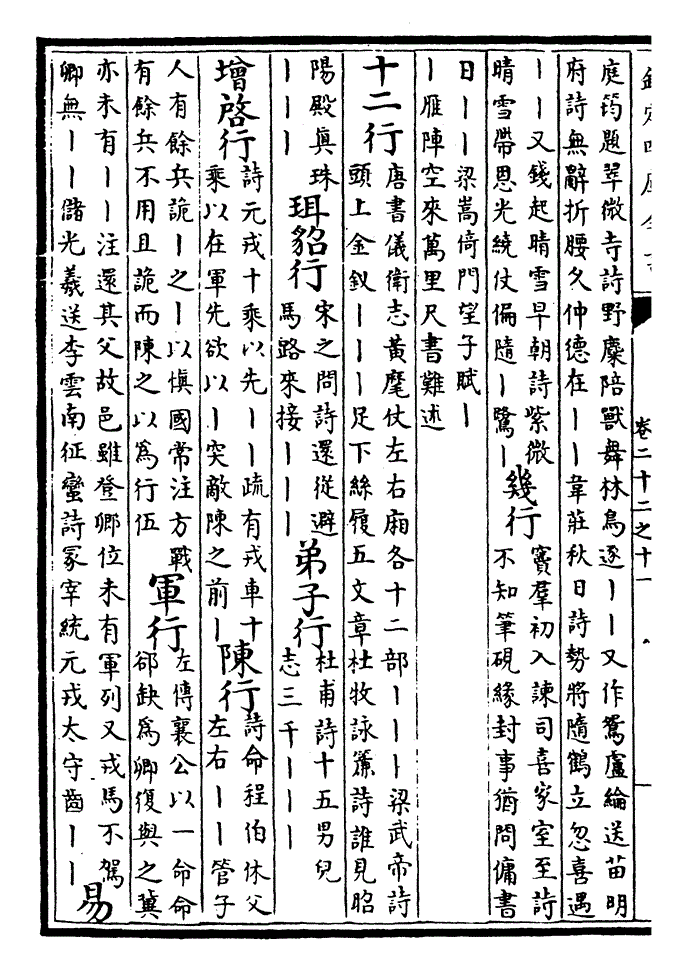 欽定四庫全書 卷二十二之十一
庭筠題翠微寺詩野麋陪獸舞林鳥逐丨丨又作鴛盧綸送苗明
府詩無辭折腰久仲德在丨丨韋莊秋日詩勢將隨鶴立忽喜遇
丨丨又錢起晴雪早朝詩紫微
晴雪帶恩光繞仗偏隨丨鷺丨
幾行
竇羣初入諫司喜家室至詩
不知筆硯緣封事猶問傭書
日丨丨梁嵩倚門望子賦丨
丨雁陣空來萬里尺書難述
十二行
唐書儀衛志黃麾仗左右廂各十二部丨丨丨梁武帝詩
頭上金釵丨丨丨足下絲履五文章杜牧詠簾詩誰見昭
陽殿真珠
丨丨丨
珥貂行
宋之問詩還從避
馬路來接丨丨丨
弟子行
杜甫詩十五男兒
志三千丨丨丨
增啓行
詩元戎十乘以先丨丨疏有戎車十
乘以在軍先欲以丨突敵陳之前丨
陳行
詩命程伯休父
左右丨丨管子
人有餘兵詭丨之丨以慎國常注方戰
有餘兵不用且詭而陳之以爲行伍
軍行
左傳襄公以一命命
郤缺爲卿復與之冀
亦未有丨丨注還其父故邑雖登卿位未有軍列又戎馬不駕
卿無丨丨儲光羲送李雲南征蠻詩冡宰統元戎太守齒丨丨
易